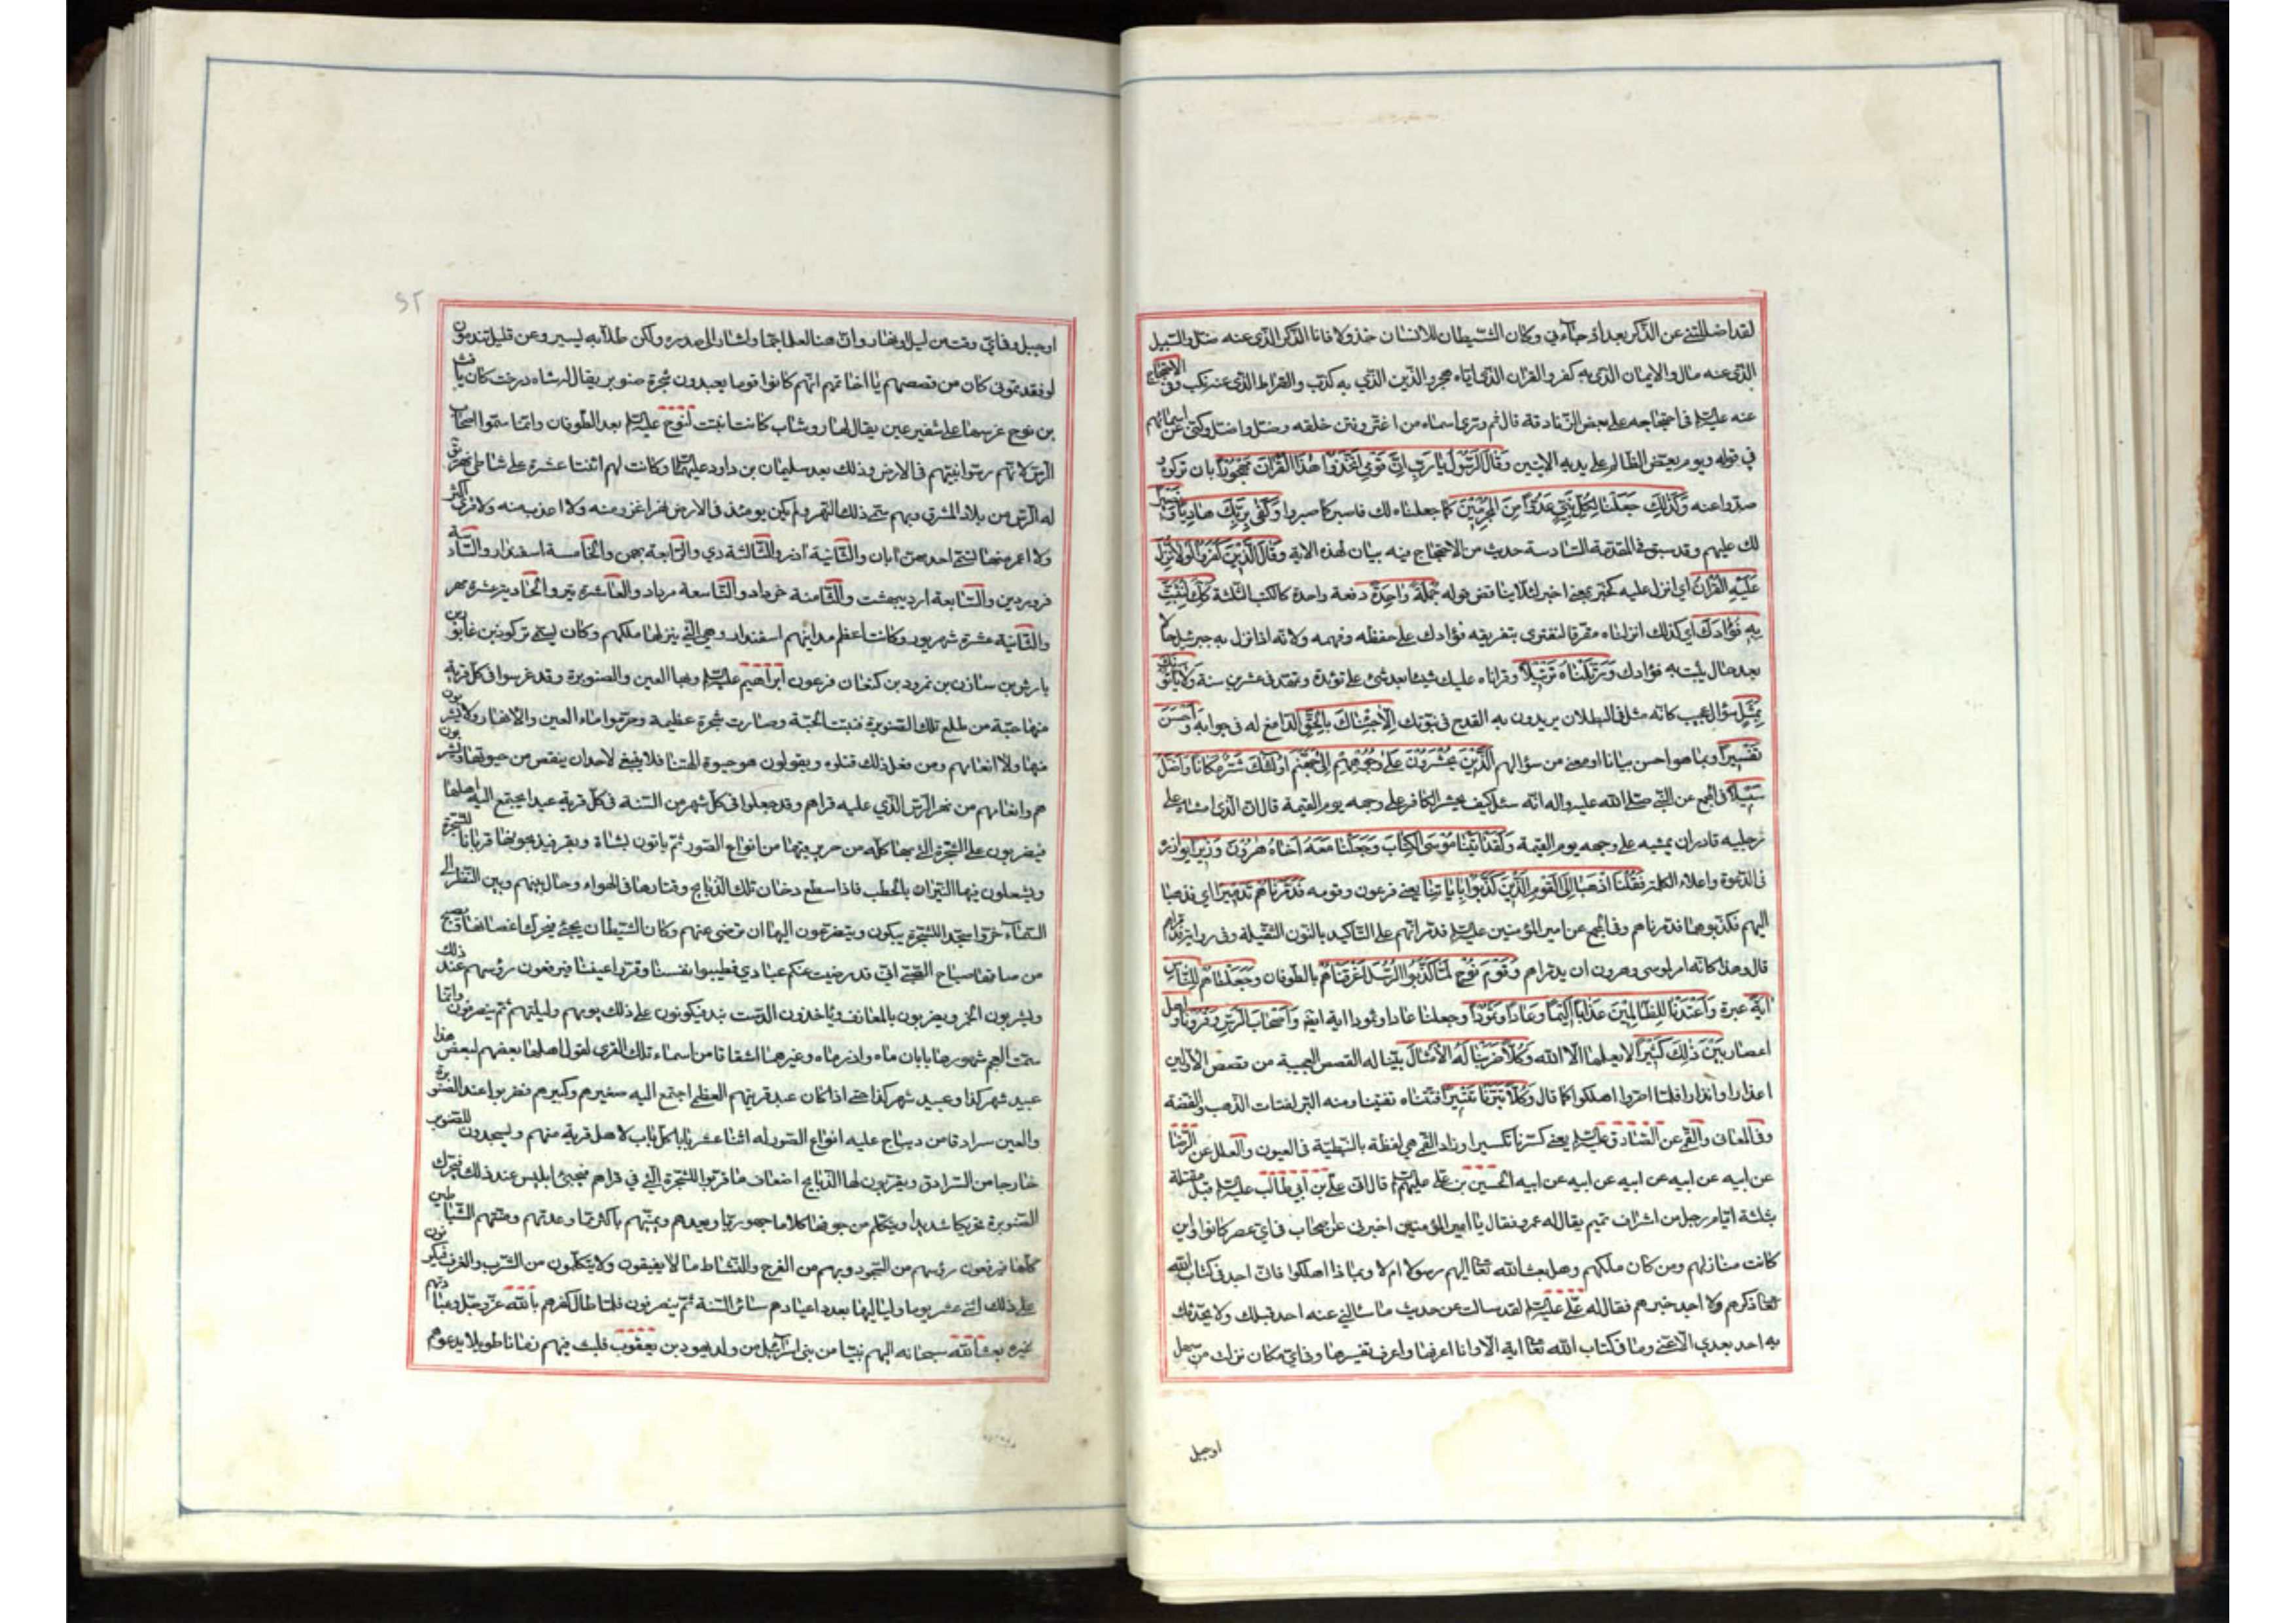 لقد اضلّني عن الذّكر بعد اذ جاءني وكان الشّيطان للانسان خذولا فانا الذّكر الذّي عنه ضلّ والسّبيل
الذّي عنه مال والايمان الذّي به كفر والقران الذّي ايّاه هجر والدّين الذّي به كذّب والصّراط الذّي عنه نكب وفي الاحتجاج
عنه عليه السلم في احتجاجه على بعض الزّنادقة قال ثم وترى اسماء من اغترّ وفتن خلقه وضلّ واضلّ وكنّى عن اسمائهم
في قوله ويوم يعضّ الظّالم على يديه الايتين وَقالَ الرَّسُولُ يا رَبِّ اِنَّ قَوْمِي اتَّخَذُوا هذَا القُرْآنَ مَهْجُوراً بان تركوه و
صدّوا عنه وَكَذلِكَ جَعَلْنا لِكُلِّ نَبِيٍّ عَدُوّاً مِنَ المُجْرِمِينَ كما جعلناه لك فاصبر كما صبروا وَكَفى بِرَبِّكَ هادِياً وَنَصِيراً
لك عليهم وقد سبق في المقدّمة السّادسة حديث من الاحتجاج فيه بيان لهذه الاية وَقالَ الَّذِينَ كَفَرُوا لَوْلا نُزِّلَ
عَلَيْهِ القُرْانُ اي انزل عليه كخبّر بمعنى اخبر لئلا يناقض قوله جُمْلَةً واحِدَةً دفعة واحدة كالكتب الثلثة كَذلِكَ لِنُثَبِّتَ
بِهِ فُؤادَكَ اي كذلك انزلناه مفرّقا لنقوّى بتفريقه فؤادك على حفظه وفهمه ولانّه اذا نزل به جبرئيل حالا
بعد حال يثبت به فؤادك وَرَتَّلْناهُ تَرْتِيلاً وقراناه عليك شيئا بعد شئ على تؤدة وتمهّل في عشرين سنة وَلا يَأْتُونَكَ
بِمَثَلٍ سؤال عجيب كانّه مثل في البطلان يريدون به القدح في نبوّتك اِلاّ جِئْناكَ بِالحَقِّ الدّامغ له في جوابه وَاَحْسَنَ
تَفْسِيراً وبما هو احسن بيانا او معنى من سؤالهم اَلَّذِينَ يُحْشَرُونَ عَلى وُجُوهِهِمْ اِلى جَهَنَّمَ اُولئِكَ شَرٌّ مَكاناً وَاَضَلُّ
سَبِيلاً في المجمع عن النّبيّ صلّى الله عليه واله انّه سئل كيف يحشر الكافر على وجهه يوم القيمة قال انّ الذّي امشاه على
رجليه قادر ان يمشيه على وجهه يوم القيمة وَلَقَدْ اتَيْنا مُوسَى الكِتابَ وَجَعَلْنا مَعَهُ اَخاهُ هرُونَ وَزِيراً يوازره
في الدّعوة واعلاء الكلمة فَقُلْنَا اذْهَبا اِلَى القَوْمِ الَّذِينَ كَذَّبُوا بِاياتِنا يعني فرعون وقومه فَدَمَّرْناهُمْ تَدْمِيراً اي فذهبا
اليهم فكذّبوهما فدمّرناهم وفي المجمع عن امير المؤمنين عليه السلم فدمّرانّهم على التّاكيد بالنّون الثّقيلة وفي رواية فدمّراهم
قال وهذا كانّه امر لموسى وهرون ان يدمّراهم وَقَوْمَ نُوحٍ لَمّا كَذَّبُوا الرُّسُلَ اَغْرَقْناهُمْ بالطّوفان وَجَعَلْناهُمْ لِلنّاسِ
ايَةً عبرة وَاَعْتَدْنا لِلظّالِمِينَ عَذاباً اَلِيماً وَعاداً وَثَمُودَ وجعلنا عادا وثمودا اية ايضا وَاَصْحابَ الرَّسِّ وَقُرُوناً واهل
اعصار بَيْنَ ذلِكَ كَثِيراً لا يعلمها الاّ الله وَكُلاًّ ضَرَبْنا لَهُ الاَمْثالَ بيّنا له القصص العجيبة من قصص الاوّلين
اعذارا وانذارا فلمّا اصرّوا اهلكوا كما قال وَكُلاًّ تَبَّرْنا تَتْبِيراً فتّتناه تفتيتا ومنه التبر لفتات الذّهب والفضّة
وفي المعاني والقمّي عن الصّادق عليه السلم يعني كسّرنا تكسيرا وزاد القمّي هي لفظة بالنّبطيّة في العيون والعلل عن الرّضا
عن ابيه عن ابيه عن ابيه عن ابيه عن ابيه الحسين بن علي عليهم السلم قال اتى عليّ بن ابي طالب عليه السلم قبل مقتله
بثلثة ايّام رجل من اشراف تميم يقال له عمرو فقال يا امير المؤمنين اخبرني عن اصحاب في ايّ عصر كانوا واين
كانت منازلهم ومن كان ملكهم وهل بعث الله تعا اليهم رسولا ام لا وبماذا اهلكوا فانّي اجد في كتاب الله
تعا ذكرهم ولا اجد خبرهم فقال له عليّ عليه السلم لقد سالت عن حديث ما سالني عنه احد قبلك ولا يحدّثك
به احد بعدي الاّ عنّي وما في كتاب الله تعا اية الا وانا اعرفها واعرف تفسيرها وفي ايّ مكان نزلت من سهل
اوجبل
او جبل وفي ايّ وقت من ليل او نهار وانّ هنا لعلما جمّا واشار الى صدره ولكن طلاّبه يسير وعن قليل تندمون
لو فقد تموني كان من قصصهم يا اخا تميم انّهم كانوا قوما يعبدون شجرة صنوبر يقال لها شاه درخت كان يافث
بن نوح غرسها على شفير عين يقال لها روشاب كانت انبتت لنوح عليه السلم بعد الطّوفان وانّما سمّوا اصحاب
الرّسّ لانّهم رسّوا نبيّهم في الارض وذلك بعد سليمان بن داود عليهما وكانت لهم اثنتا عشرة على شاطئ نهر يق
له الرّس من بلاد المشرق وبهم سمّي ذلك النّهر ولم يكن يومئذ في الارض نهر اغزر منه ولا اعذب منه ولا قرى اكثر
ولا اعمر منها تسمّى احديهنّ ابان والثّانية اذر والثّالثة دي والرّابعة بهمن والخامسة اسفندار والسّادسة
فروردين والسّابعة ارديبهشت والثّامنة خرداد والتّاسعة مرداد والعاشرة تير والحادية عشرة مهر
والثّانية عشرة شهريور وكانت اعظم مداينهم اسفندار وهي الّتي ينزلها ملكهم وكان يسمّى تركوذ بن غابور بن
يارش بن سازن بن نمرود بن كنعان فرعون ابراهيم عليه السلم وبها العين والصنوبرة وقد غرسوا في كلّ قرية
منها حبّة من طلع تلك الصّنوبرة فنبت الحبّة وصارت شجرة عظيمة وحرّموا ماء العين والانهار ولا يشربون
منها ولا انعامهم ومن فعل ذلك قتلوه ويقولون هو حيوة الهتنا فلا ينبغي لاحد ان ينقص من حيوتها ويشربون
هم وانعامهم من نهر الرّسّ الّذي عليه قراهم وقد جعلوا في كلّ شهر من السّنة في كلّ قرية عيدا يجتمع اليه اهلها
فيضربون على الشّجرة الّتي بها كلّة من حرير فيها من انواع الصّور ثمّ ياتون بشاة وبقر فيذبحونها قربانا للشجرة
ويشعلون فيها النّيران بالحطب فاذا سطع دخان تلك الذّبايح وقتارها في الهواء وحال بينهم وبين النّظر الى
السّماء خرّوا سجّدا للشّجرة يبكون ويتضرّعون اليها ان ترضى عنهم وكان الشّيطان يجئ فيحرّك اغصانها ويصيح
من ساقها صياح الصّبيّ انّي قد رضيت عنكم عبادي فطيبوا نفسنا وقرّوا عينا فيرفعون رؤسهم عند ذلك
ويشربون الخمر ويضربون بالمعازف وياخذون الدّست بند فيكونون على ذلك يومهم وليلتهم ثمّ ينصرفون وانّما
سمّت العجم شهورها بابان ماه واذر ماه وغيرهما اشتقاقا من اسماء تلك القرى لقول اهلها بعضهم لبعض هذا
عيد شهر كذا وعيد شهر كذا حتّى اذا كان عيد قريتهم العظمى اجتمع اليه صغيرهم وكبيرهم فضربوا عند الصنوبرة
والعين سرادقا من ديباج عليه انواع الصّور له اثنا عشر بابا كلّ باب لاهل قرية منهم ويسجدون للصّنوبرة
خارجا من السّرادق ويقرّبون لها الذّبايح اضعاف ما قرّبوا للشّجرة الّتي في قراهم فيجئ ابليس عند ذلك فيحرّك
الصّنوبرة تحريكا شديدا ويتكلّم من جوفها كلاما جهوريّا ويعدهم ويمنّيهم باكثر ممّا وعدتهم ومنّتهم الشّياطين
كلّها فيرفعون رؤسهم من السّجود وبهم من الفرح والنّشاط ما لا يفيقون ولا يتكلّمون من الشّرب والعزف فيكونون
على ذلك اثنى عشر يوما ولياليها بعدد اعيادهم سائر السّنة ثمّ ينصرفون فلمّا طال كفرهم بالله عزّ وجلّ وعبادتهم
غيره بعث الله سبحانه اليهم نبيّا من بني اسرآئيل من ولد يهود بن يعقوب فلبث فيهم زمانا طويلا يدعوهم